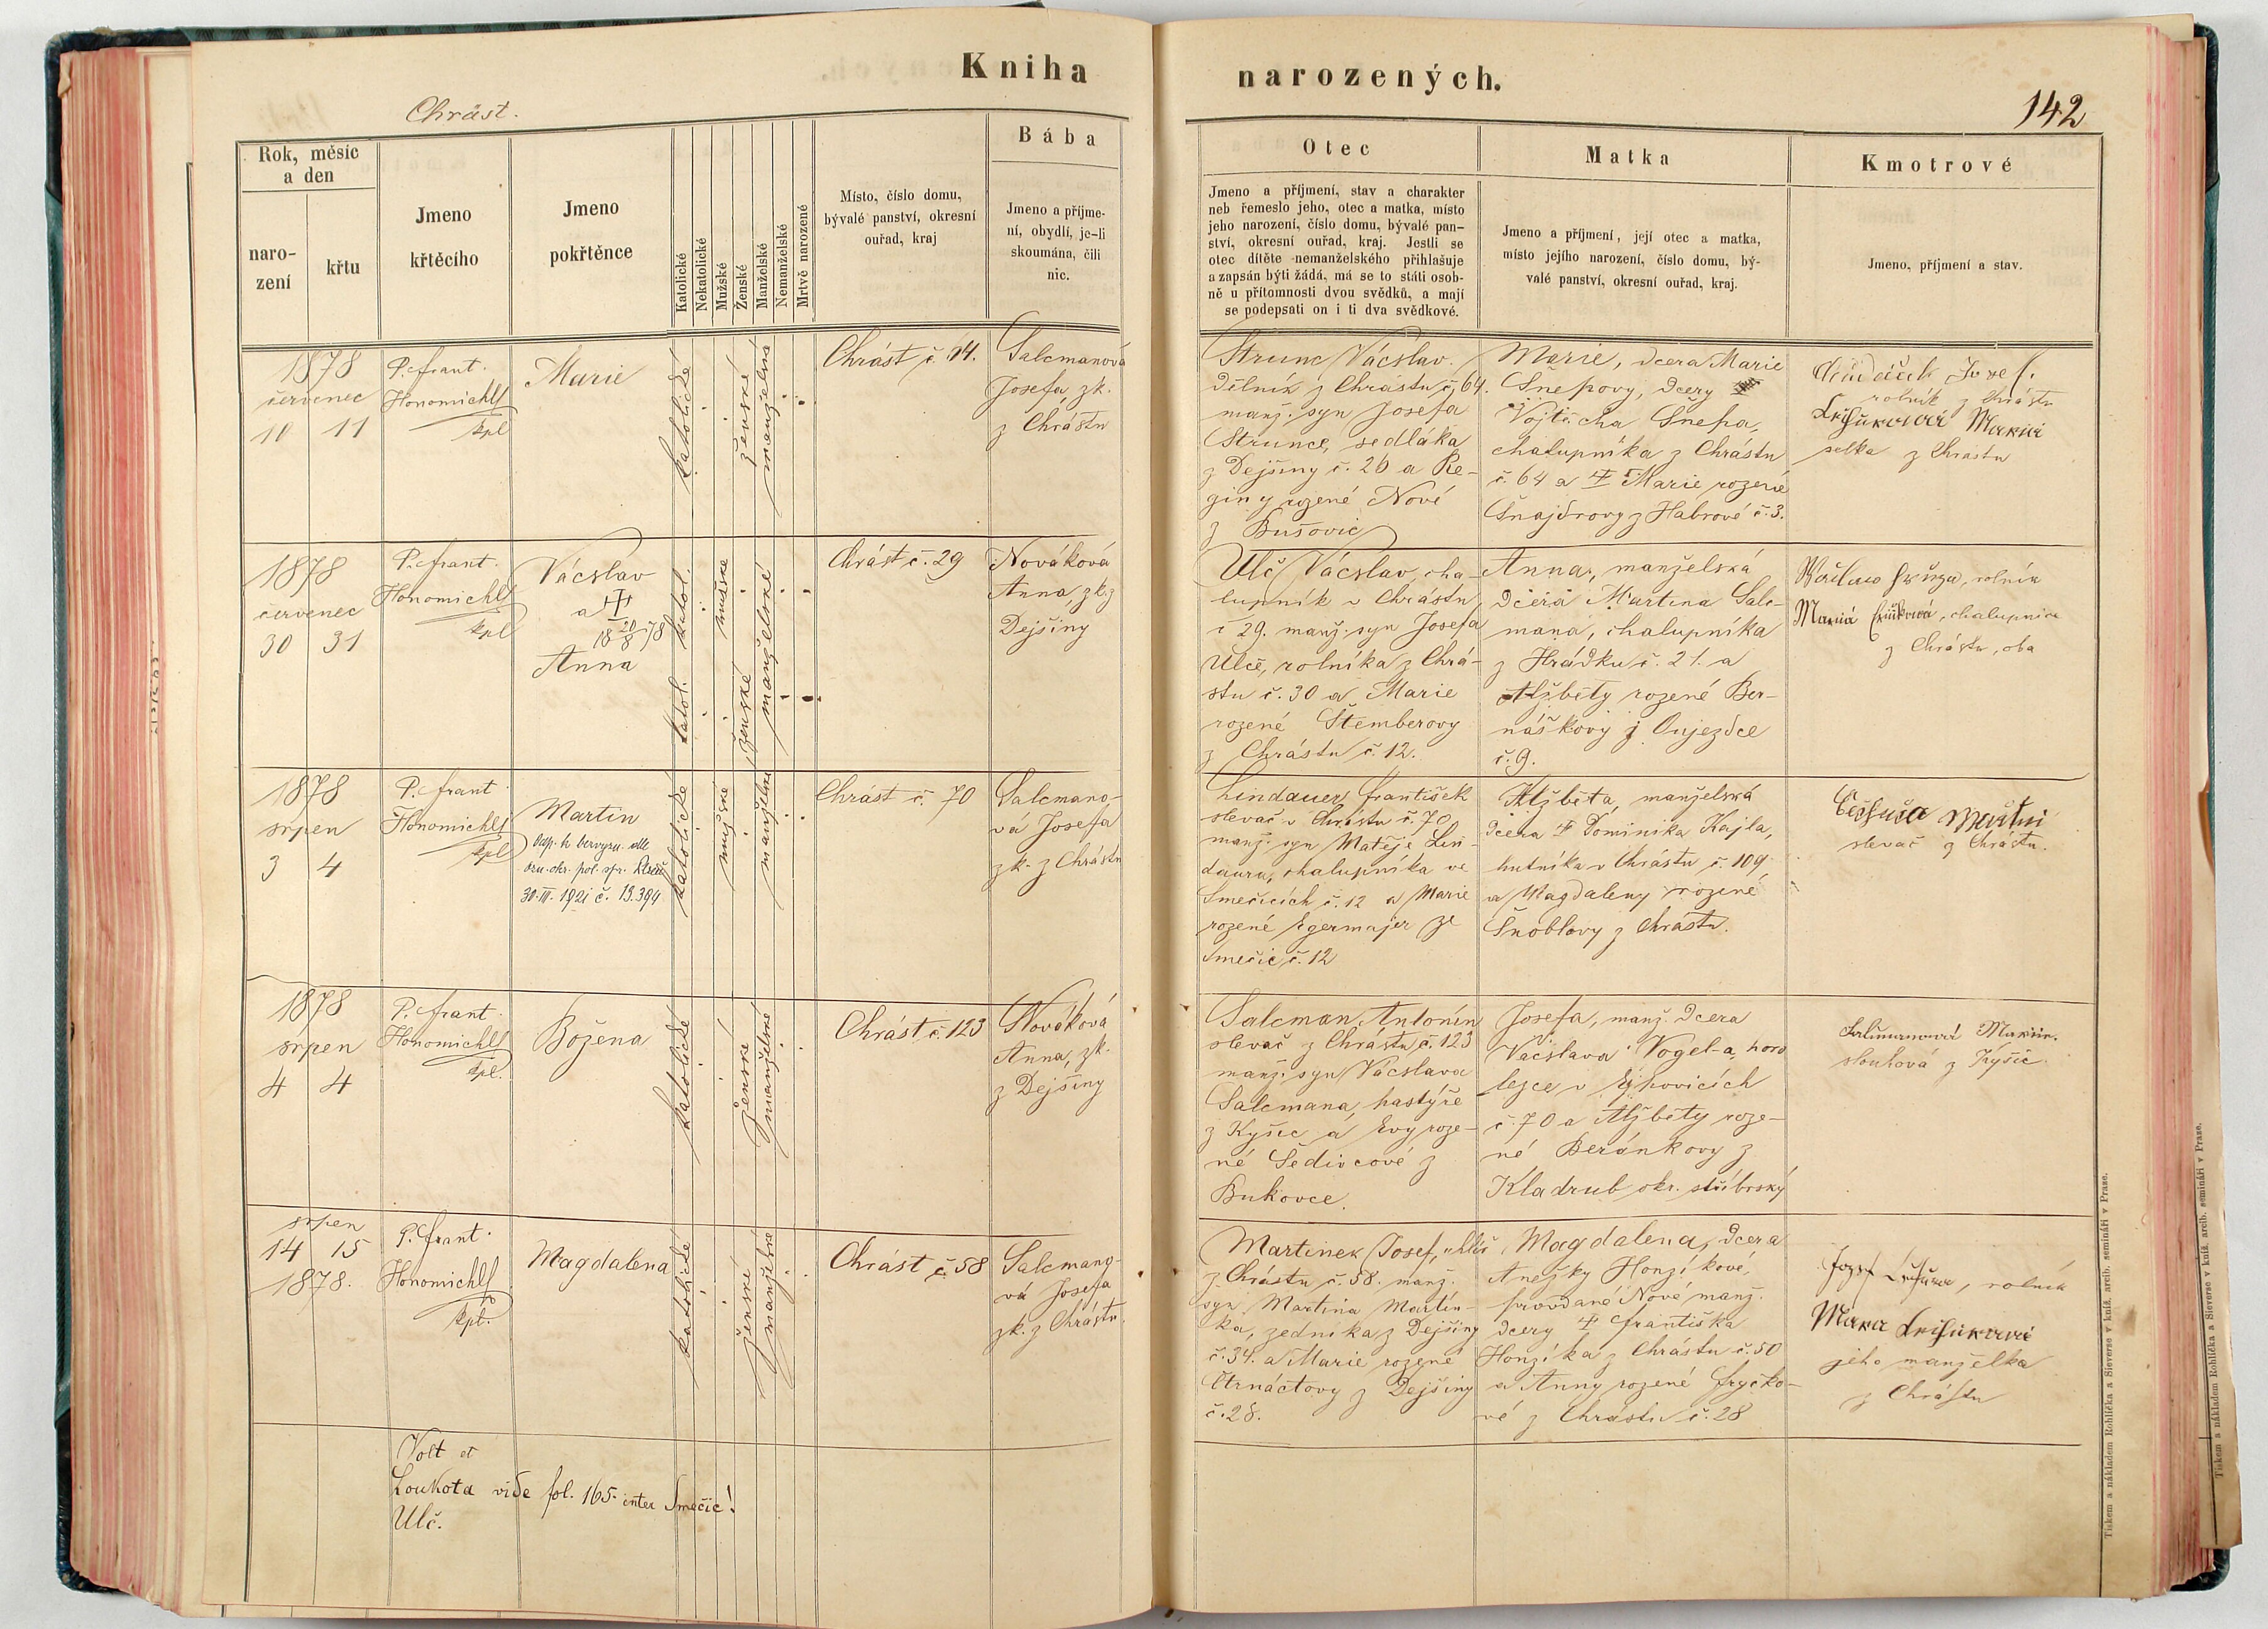 Kniha
narozených.
Chrást.
142
Rok, měsíc
a den
naro-
zení
křtu
Jmeno
křtěcího
Jmeno
pokřtěnce
Katolické
Nekatolické
Mužské
Ženské
Manželské
Nemanželské
Mrtvě narozené
Místo, číslo domu,
bývalé panství, okresní
ouřad, kraj
Bába
Jmeno a příjme-
ní, obydlí, je-li
skoumána, čili
nic.
Otec
Jmeno a příjmení, stav a charakter
neb řemeslo jeho, otec a matka, místo
jeho narození, číslo domu, bývalé pan-
ství, okresní ouřad, kraj. Jestli se
otec dítěte nemanželského přihlašuje
a zapsán býti žádá, má se to státi osob-
ně u přítomnosti dvou svědků, a mají
se podepsati on i ti dva svědkové.
Matka
Jmeno a příjmení, její otec a matka,
místo jejího narození, číslo domu, bý-
valé panství, okresní ouřad, kraj.
Kmotrové
Jmeno, příjmení a stav.
1878
červenec
10 11
P. Frant.
Honomichl
kpl
Marie
katolické
ženské
manželské
Chrást č. 14.
Salcmanová
Josefa, zk.
z Chrástu
Strunc Vácslav.
dělník z Chrástu č. 64.
manž. syn Josefa
Strunce, sedláka
z Dejšiny č. 26 a Re-
giny rozené Nové
z Bušovic
Marie, dcera Marie
Šnepovy, dcery
Vojtěcha Šnepa,
chalupníka z Chrástu
č. 64 a † Marie rozené
Šnajdrovy z Habrové č. 3.
Josef.
rolník z Chrástu
selka z Chrástu
1878
červenec
30 31
P. Frant.
Honomichl
kpl
Vácslav
a †
18 20/8 78
Anna
katol.
mužské
manželské
katol.
ženské
Chrást č. 29
Nováková
Anna, zk. z
Dejšiny
Ulč Vácslav, cha-
lupník v Chrástu
č 29. manž. syn Josefa
Ulče, rolníka z Chrá-
stu č. 30 a Marie
rozené Štemberovy
z Chrástu č. 12.
Anna, manželská
dcera Martina Salc-
mana, chalupníka
z Hrádku č. 21. a
Alžběty rozené Ber-
náškovy z Oujezdce
č. 9.
rolník
chalupnice
z Chrástu, oba
1878
srpen
3 4
P. Frant.
Honomichl
kpl
Martin
30. III. 1921 č. 13.394
katolické
mužské
manželské
Chrást č. 70
Salcmano-
vá Josefa
zk. z Chrástu
Lindauer František
slevač v Chrástu č. 70
manž. syn Matěje Lin-
daura, chalupníka ve
Smečicích č. 12 a Marie
rozené Egermajer ze
Smečic č. 12
Alžběta, manželská
dcera † Dominika Kajla,
hutníka v Chrástu č. 109
a Magdaleny rozené
Šnoblovy z Chrástu.
slevač z Chrástu.
1878
srpen
4 4
P. Frant.
Honomichl
kpl.
Božena
katolické
ženské
manželské
Chrást č. 123
Nováková
Anna, zk.
z Dejšiny
Salcman Antonín
slevač z Chrástu, č. 123
manž. syn Vácslava
Salcmana, hastýře
z Kyšic a Evy roze-
né Šedivcové z
Bukovce.
Josefa, manž. dcera
Vácslava Vogel-a, hav
lezce v Ejpovicích
č. 70 a Alžběty roze-
né Beránkovy z
Kladrub okr. stříbrský
z Kyšic
srpen
14 15
1878.
P. Frant.
Honomichl
kpl.
Magdalena
katolické
ženské
manželské
Chrást č. 58
Salcmano-
vá Josefa
zk. z Chrástu.
Martinek Josef, uhlíř
z Chrástu č. 58. manž.
syn Martina Martin-
ka, zedníka z Dejšiny
č. 34. a Marie rozené
Čtrnáctovy z Dejšiny
č. 28.
Magdalena, dcera
Anežky Honzíkové,
provdané Nové manž.
dcery † Františka
Honzíka z Chrástu č. 50
a Anny rozené Fryčko-
vé z Chrástu č. 28
Josef, rolník
jeho manželka
z Chrástu
Volt et
Loukota vide fol. 165. inter Smečic!
Ulč.
Tiskem a nákladem Rohlíčka a Sieverse v kníž. arcib. semináři v Praze.
Tiskem a nákladem Rohlíčka a Sieverse v kníž. arcib. semináři v Praze.